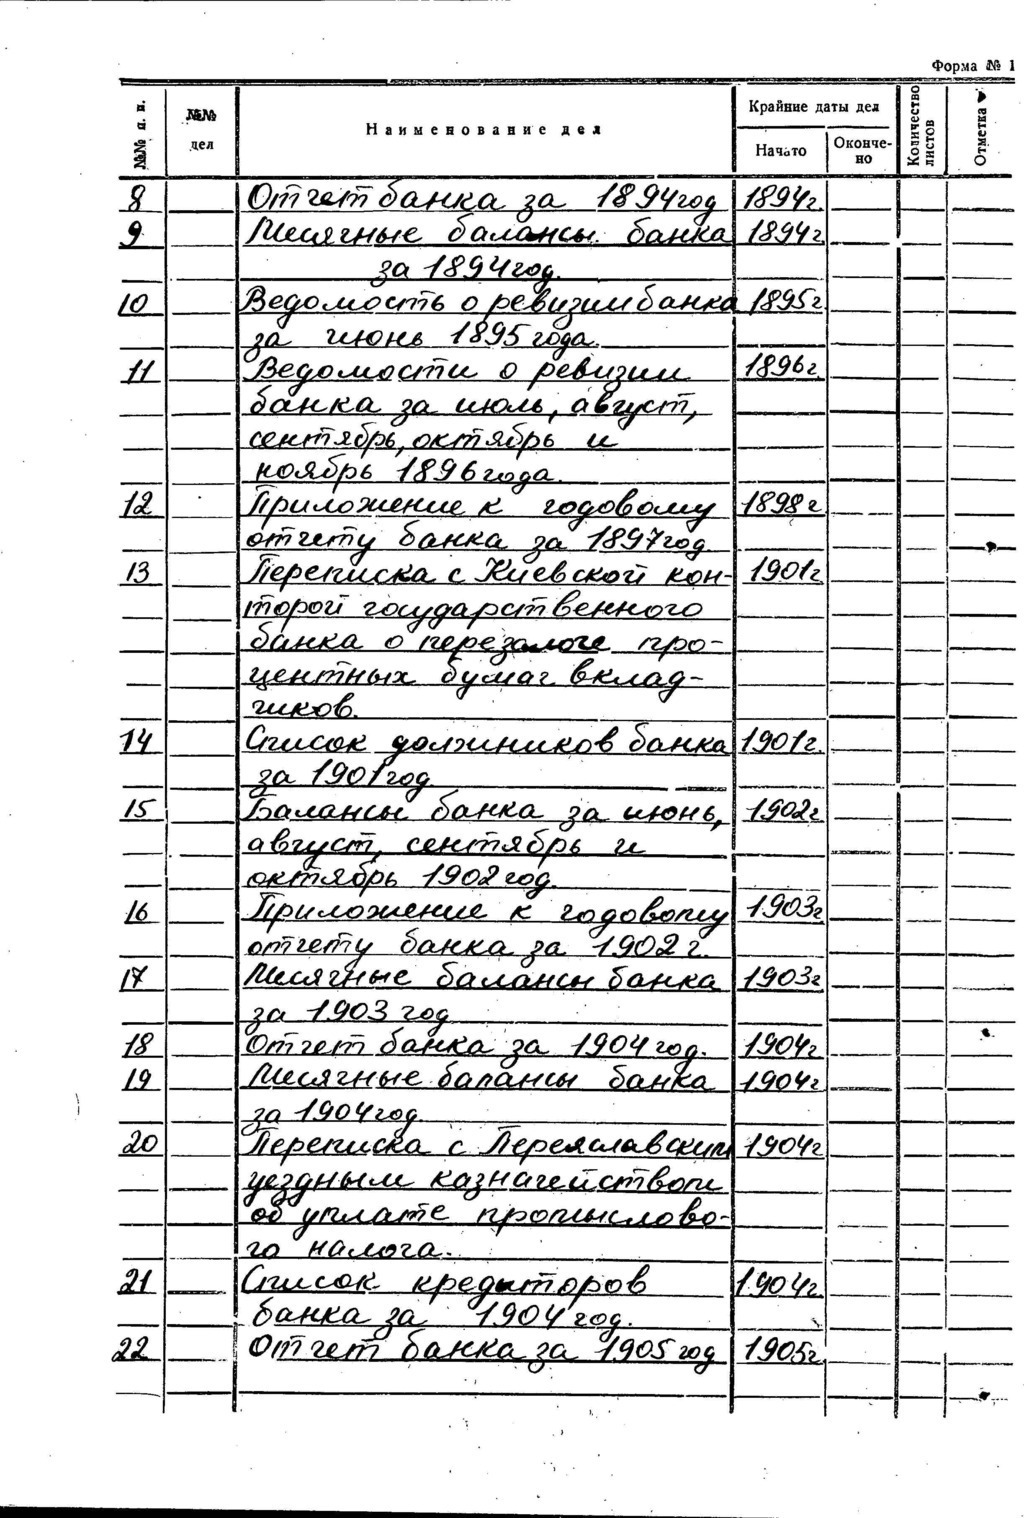 Форма № 1
№№ п. п.
№№ дел
Наименование дел
Крайние даты дел
Начато
Окончено
Количество листов
Отметка
8 Отчет банка за 1894 год 1894г.
9 Месячные балансы банка 1894г
за 1894 год.
10 Ведомость о ревизии банка 1895г
за июнь 1895 года.
11 Ведомости о ревизии 1896г.
банка за июль, август,
сентябрь, октябрь и
ноябрь 1896 года.
12 Приложение к годовому 1898г
отчету банка за 1897 год
13 Переписка с Киевской кон- 1901г
торой государственного
банка о перезалоге про-
центных бумаг вклад-
чиков.
14 Список должников банка 1901г.
за 1901 год
15 Балансы банка за июнь, 1902г
август, сентябрь и
октябрь 1902 год.
16 Приложение к годовому 1903г
отчету банка за 1902 г.
17 Месячные балансы банка 1903г
за 1903 год
18 Отчет банка за 1904 год. 1904г
19 Месячные балансы банка 1904г
за 1904 год.
20 Переписка с Переяславским 1904г
уездным казначейством
об уплате промыслово-
го налога.
21 Список кредиторов 1904г
банка за 1904 год.
22 Отчет банка за 1905 год 1905г